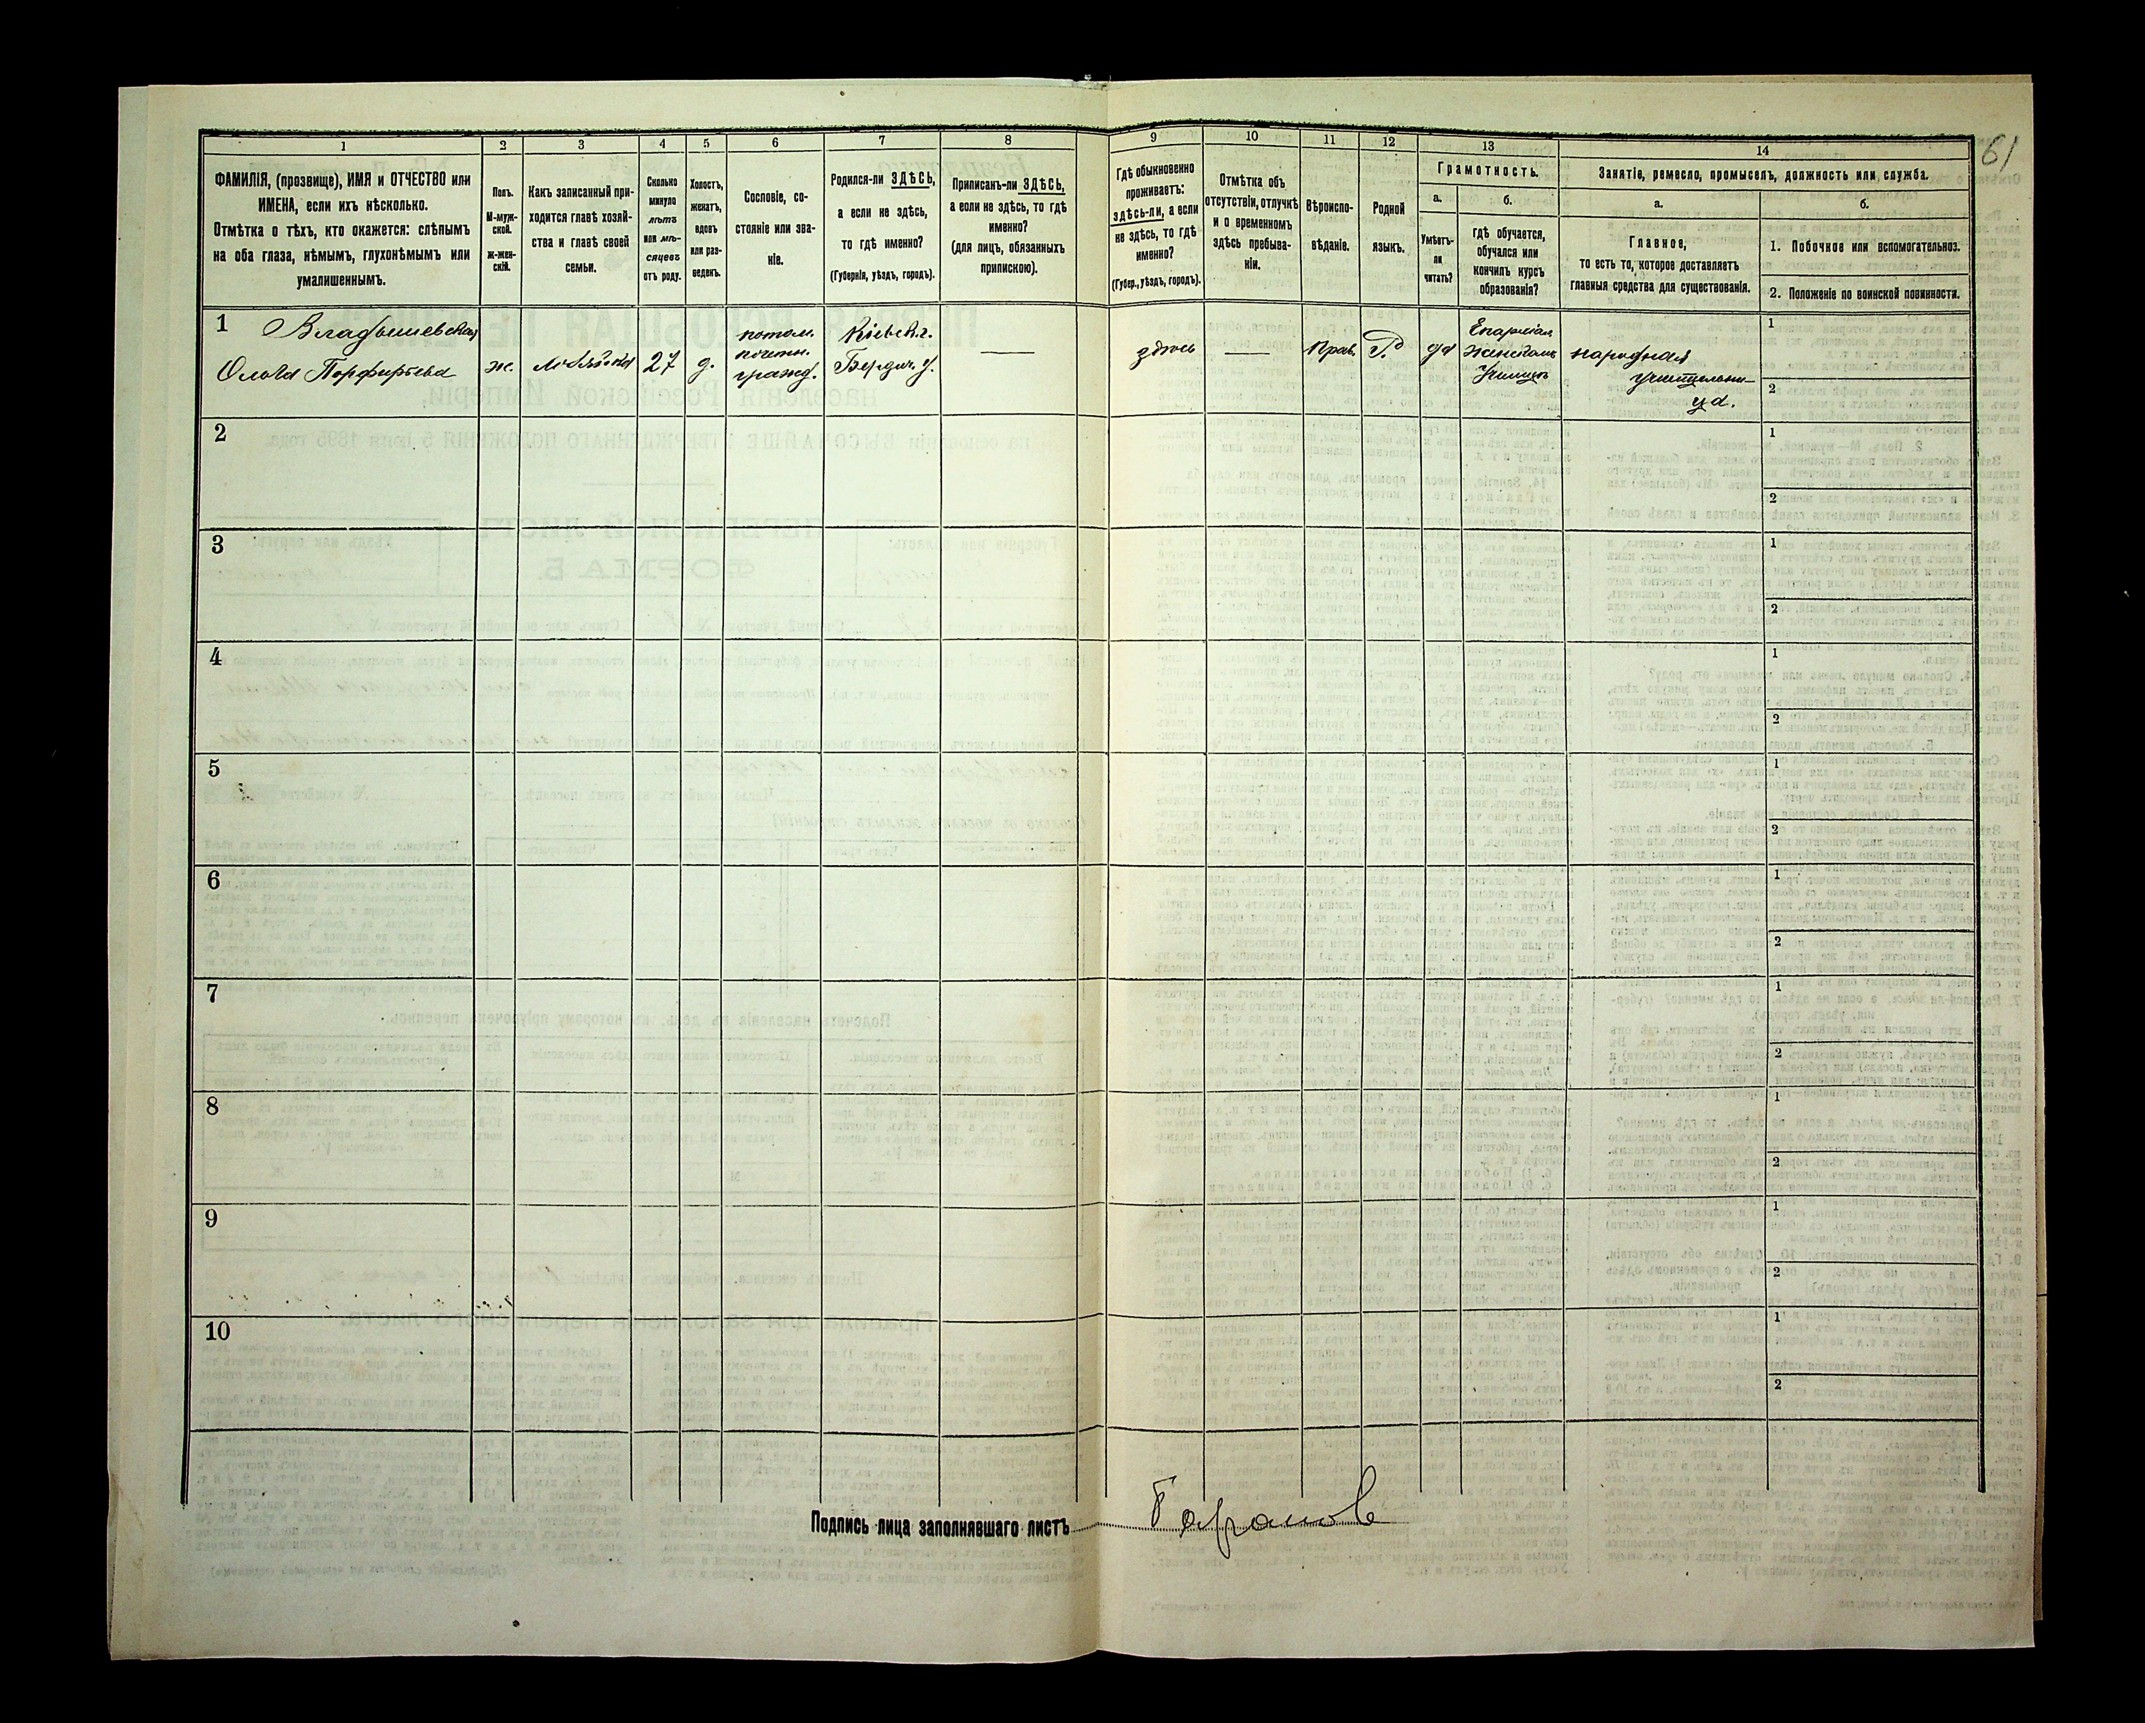 61
1
2
3
4
5
6
7
8
9
10
11
12
13
14
ФАМИЛІЯ, (прозвище), ИМЯ и ОТЧЕСТВО или
ИМЕНА, если ихъ нѣсколько.
Отмѣтка о тѣхъ, кто окажется: слѣпымъ
на оба глаза, нѣмымъ, глухонѣмымъ или
умалишеннымъ.
Полъ.
М-муж-
ской.
ж-жен-
скій.
Какъ записанный при-
ходится главѣ хозяй-
ства и главѣ своей
семьи.
Сколько
минуло
лѣтъ
или мѣ-
сяцевъ
отъ роду.
Холостъ,
женатъ,
вдовъ
или раз-
веденъ.
Сословіе, со-
стояніе или зва-
ніе.
Родился-ли ЗДѢСЬ,
а если не здѣсь,
то гдѣ именно?
(Губернія, уѣздъ, городъ).
Приписанъ-ли ЗДѢСЬ,
а если не здѣсь, то гдѣ
именно?
(для лицъ, обязанныхъ
припискою).
Гдѣ обыкновенно
проживаетъ:
здѣсь-ли, а если
не здѣсь, то гдѣ
именно?
(Губер., уѣздъ, городъ).
Отмѣтка объ
отсутствіи, отлучкѣ
и о временномъ
здѣсь пребыва-
ніи.
Вѣроиспо-
вѣданіе.
Родной
языкъ.
Грамотность.
а.
Умѣетъ-
ли
читать?
б.
гдѣ обучается,
обучался или
кончилъ курсъ
образованія?
Занятіе, ремесло, промыселъ, должность или служба.
а.
Главное,
то есть то, которое доставляетъ
главныя средства для существованія.
б.
1. Побочное или вспомогательное.
2. Положеніе по воинской повинности.
1
Владышевская
Ольга Порфирьева
ж.
27
д.
потом.
почетн.
гражд.
Кіевск. г.
Бердич. у.
—
здѣсь
—
Прав.
Р.
да
Епархіал.
Женском
Училищѣ
народная
учительни-
ца.
1
2
2
1
2
3
1
2
4
1
2
5
1
2
6
1
2
7
1
2
8
1
2
9
1
2
10
1
2
Подпись лица заполнявшаго листъ